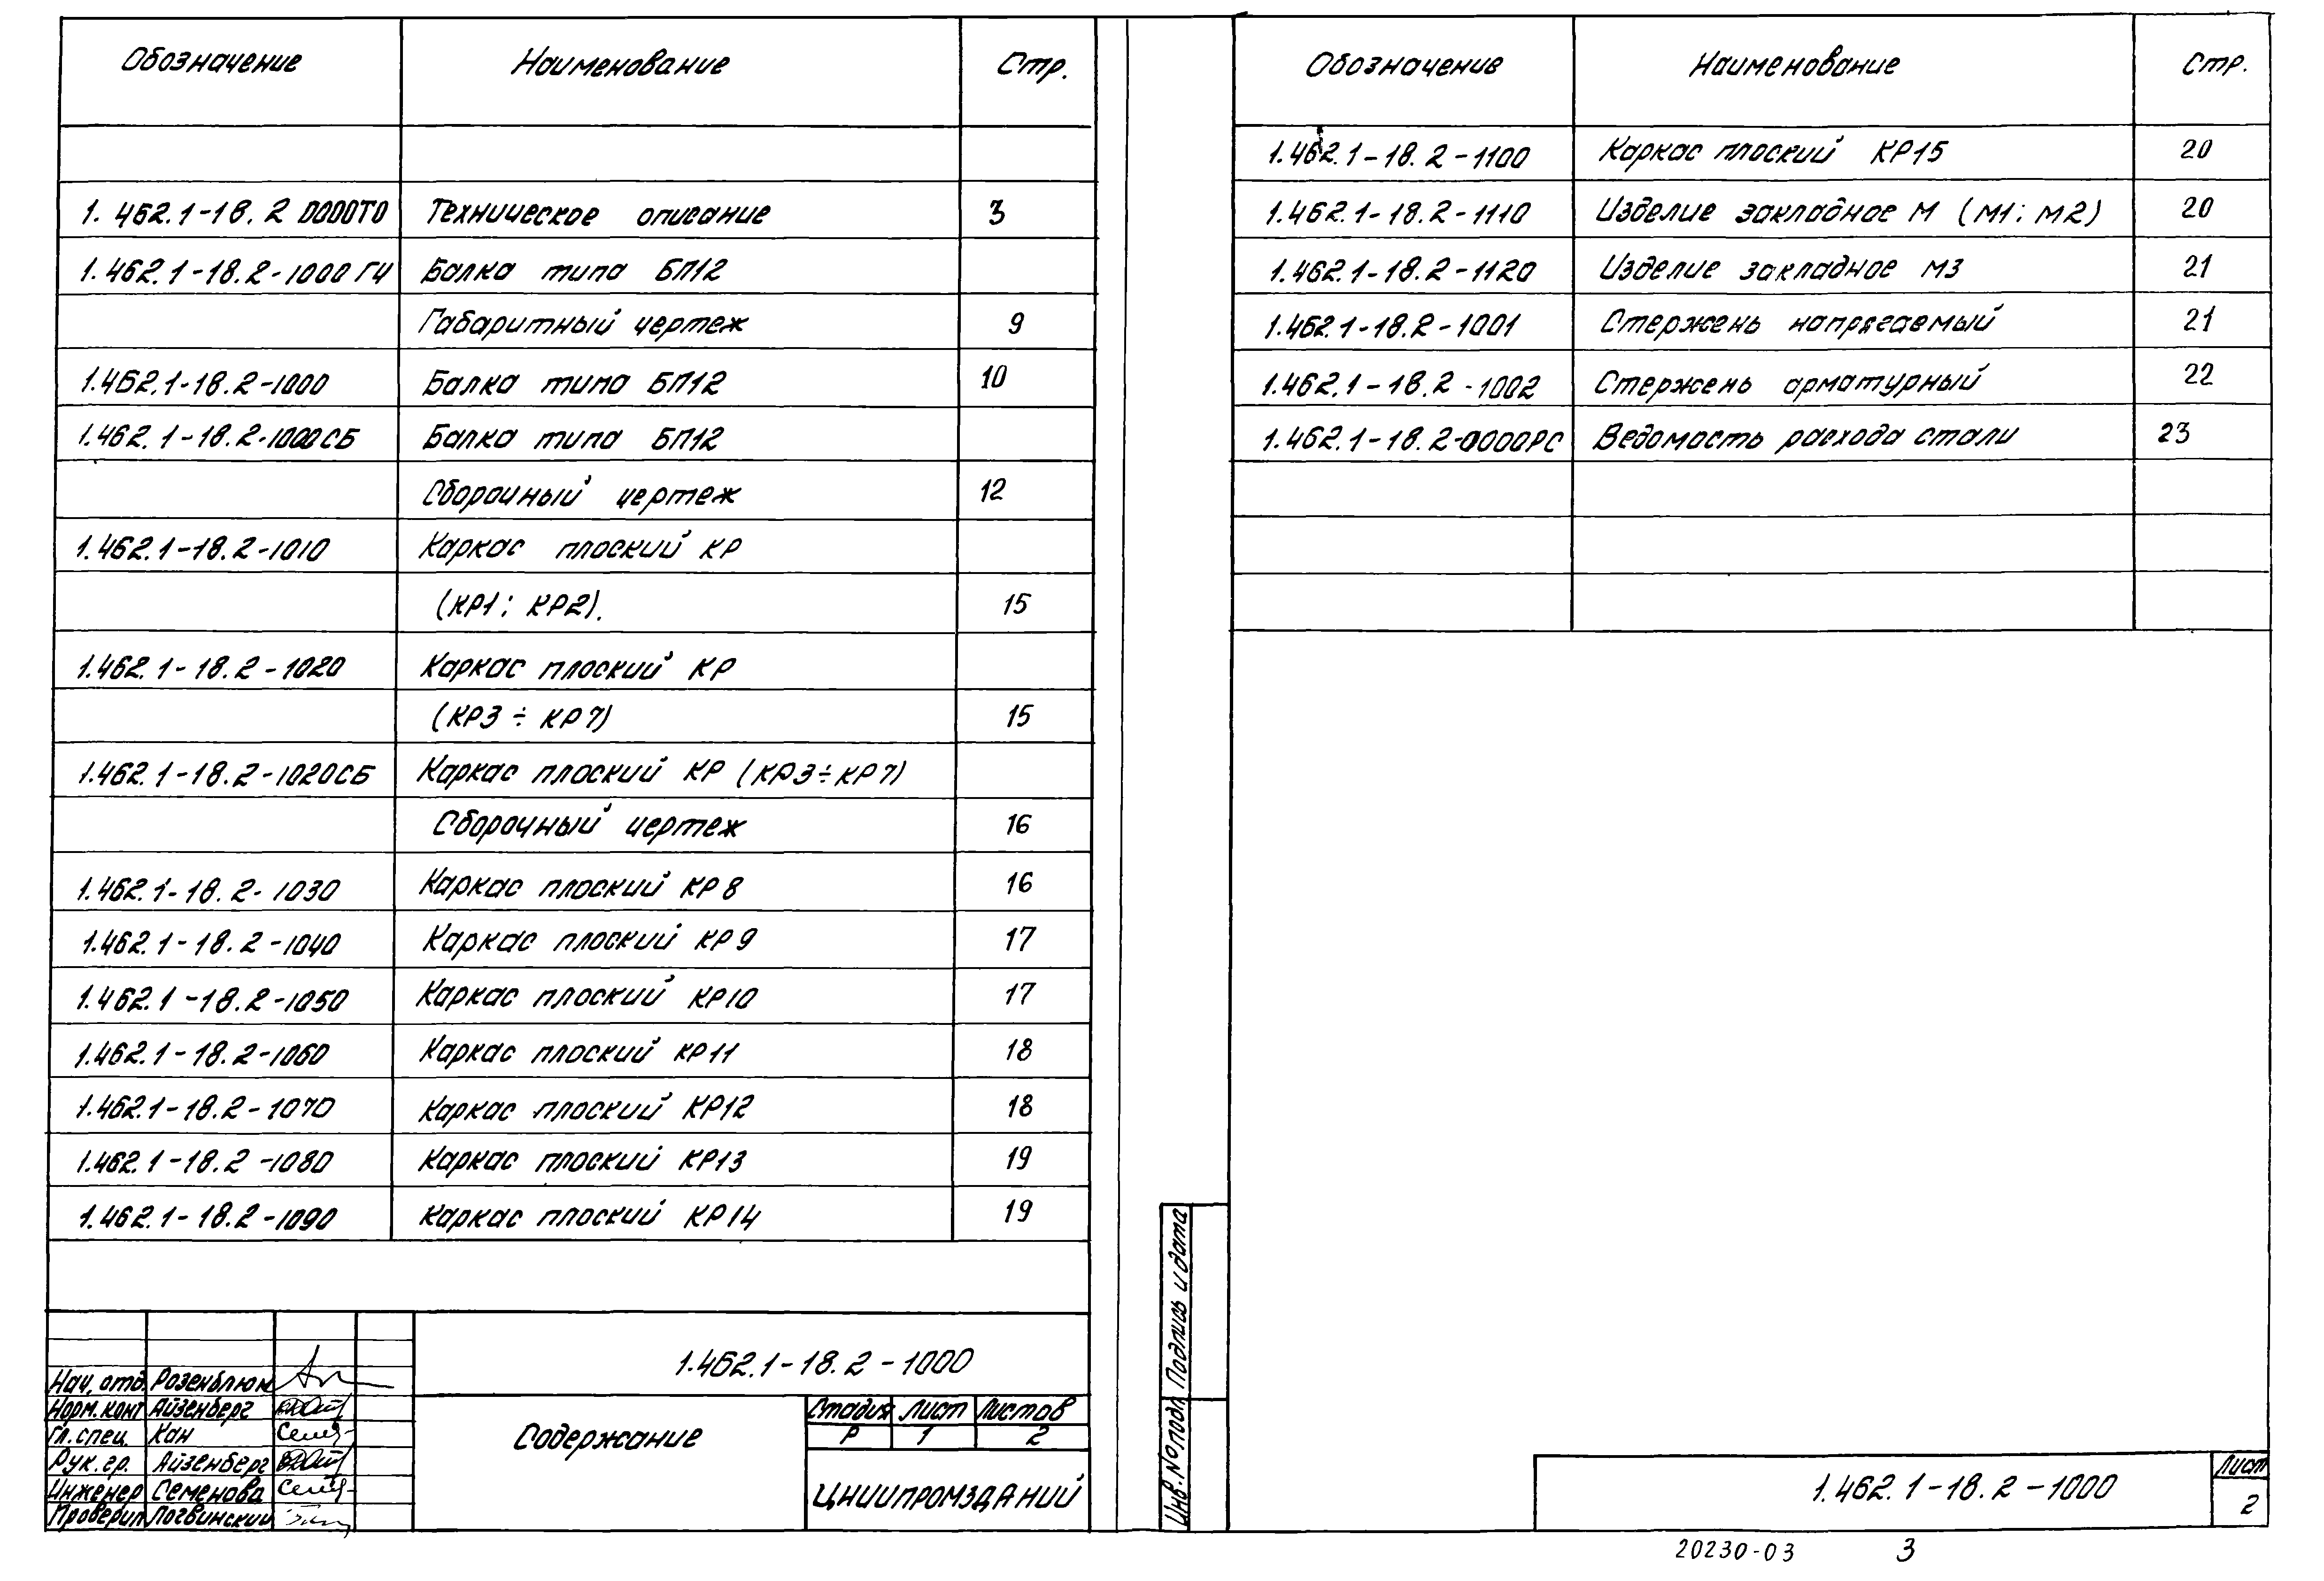 Обозначение Наименование Стр.
1.462.1-18.2 0000ТО Техническое описание 3
1.462.1-18.2-1000 ГЧ Балка типа БП12
Габаритный чертеж 9
1.462.1-18.2-1000 Балка типа БП12 10
1.462.1-18.2-1000СБ Балка типа БП12
Сборочный чертеж 12
1.462.1-18.2-1010 Каркас плоский КР
(КР1; КР2). 15
1.462.1-18.2-1020 Каркас плоский КР
(КР3 ÷ КР7) 15
1.462.1-18.2-1020СБ Каркас плоский КР (КР3÷КР7)
Сборочный чертеж 16
1.462.1-18.2-1030 Каркас плоский КР8 16
1.462.1-18.2-1040 Каркас плоский КР9 17
1.462.1-18.2-1050 Каркас плоский КР10 17
1.462.1-18.2-1060 Каркас плоский КР11 18
1.462.1-18.2-1070 Каркас плоский КР12 18
1.462.1-18.2-1080 Каркас плоский КР13 19
1.462.1-18.2-1090 Каркас плоский КР14 19
1.462.1-18.2-1000
Нач. отд. Розенблюм
Норм. конт Айзенберг
Гл. спец. Кан
Рук. гр. Айзенберг
Инженер Семенова
Проверил Логвинский
Содержание
Стадия Лист Листов
Р 1 2
ЦНИИПРОМЗДАНИЙ
Обозначение Наименование Стр.
1.462.1-18.2-1100 Каркас плоский КР15 20
1.462.1-18.2-1110 Изделие закладное М (М1; М2) 20
1.462.1-18.2-1120 Изделие закладное М3 21
1.462.1-18.2-1001 Стержень напрягаемый 21
1.462.1-18.2-1002 Стержень арматурный 22
1.462.1-18.2-0000РС Ведомость расхода стали 23
Инв. № подл Подпись и дата
1.462.1-18.2-1000
Лист
2
20230-03 3